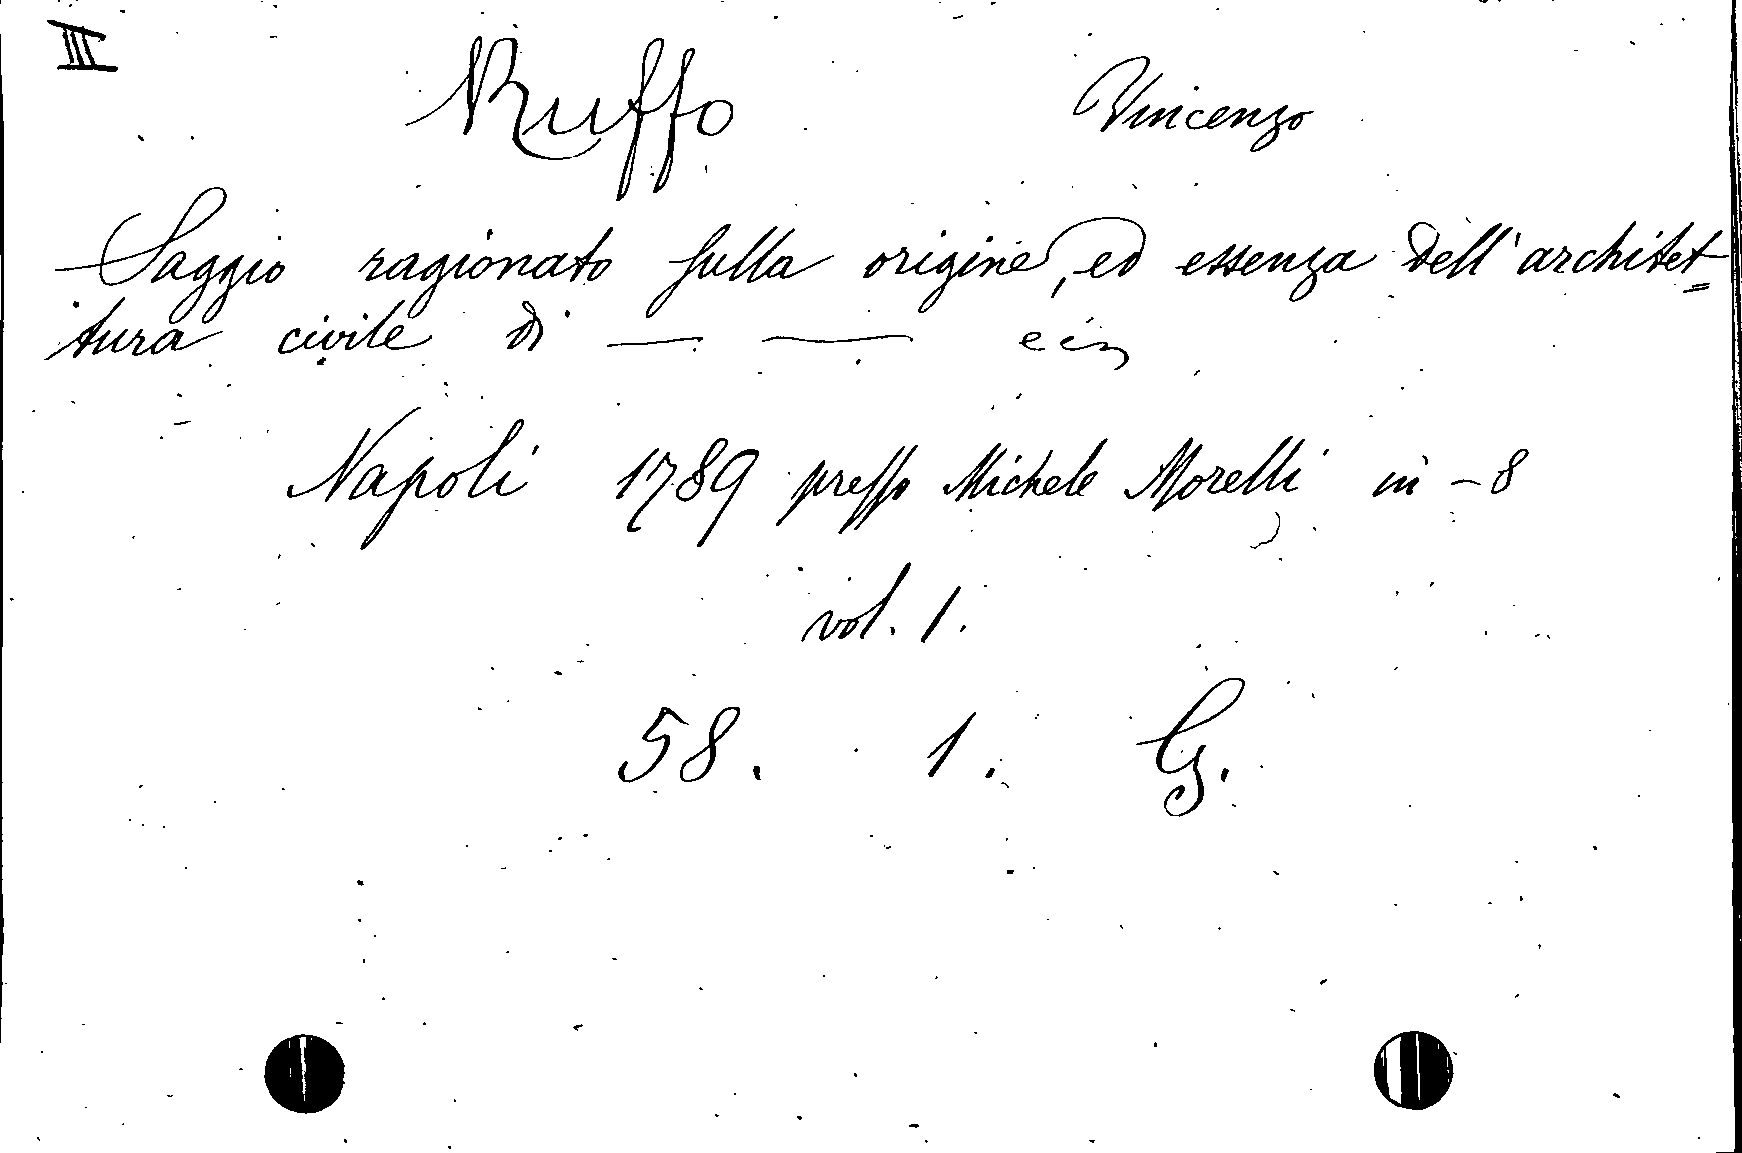 III
Ruffo Vincenzo
Saggio ragionato sulla origine, ed essenza dell'architet=
tura civile di — —
Napoli 1789 presso Michele Morelli in-8
vol. 1.
58. 1. G.